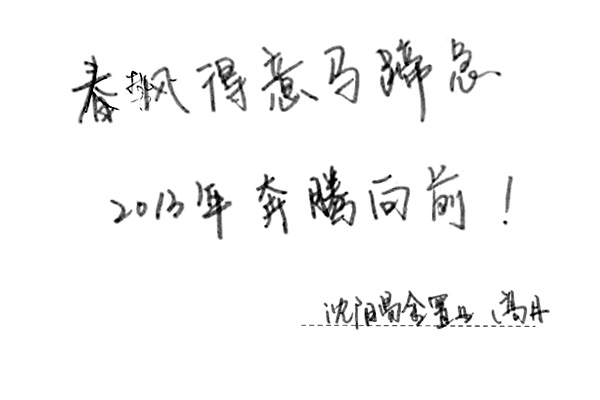 春风得意马蹄急
2013年奔腾向前！
沈阳昌金置业 冯丹